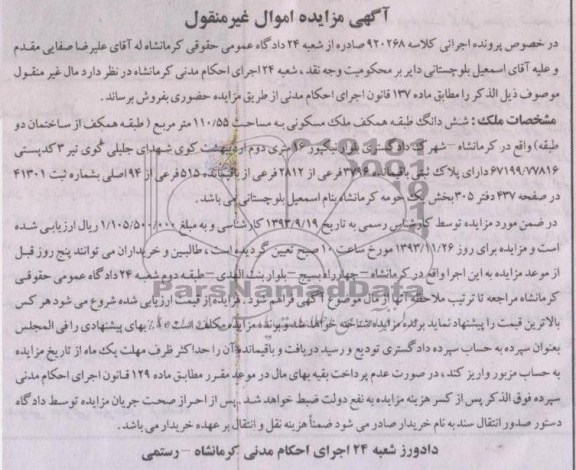 آگهی مزایده اموال غیرمنقول
در خصوص پرونده اجرائی کلاسه ۹۲۰۲۶۸ صادره از شعبه ۲۴ دادگاه عمومی حقوقی کرمانشاه له آقای علیرضا صفایی مقدم
و علیه آقای اسمعیل بلوچستانی دایر بر محکومیت وجه نقد ، شعبه ۲۴ اجرای احکام مدنی کرمانشاه در نظر دارد مال غیر منقول
موصوف ذیل الذکر را مطابق ماده ۱۳۷ قانون اجرای احکام مدنی از طریق مزایده حضوری بفروش برساند .
مشخصات ملک : شش دانگ طبقه همکف ملک مسکونی به مساحت ۱۱۰/۵۵ متر مربع ( طبقه همکف از ساختمان دو
طبقه) واقع در کرمانشاه – شهرک دادگستری بلوار نیکپور ۱۶ متری دوم اردیبهشت کوی شهدای جلیلی کوی تیر ۳ کدپستی
۶۷۱۹۹/۷۷۸۱۶ دارای پلاک ثبتی باقیمانده ۳۷۹۶ فرعی از ۲۸۱۲ فرعی از باقیمانده ۵۱۵ فرعی از ۹۴ اصلی بشماره ثبت ۴۱۳۰۱
در صفحه ۴۳۷ دفتر ۳۰۵ بخش یک حومه کرمانشاه بنام اسمعیل بلوچستانی می باشد.
در ضمن مورد مزایده توسط کارشناس رسمی به تاریخ ۱۳۹۳/۹/۱۹ کارشناسی و به مبلغ ۱/۱۰۵/۵۰۰/۰۰۰ ریال ارزیابی شده
است و مزایده برای روز ۱۳۹۳/۱۱/۲۶ مورخ ساعت ۱۰ صبح تعیین گردیده است ، طالبین و خریداران می توانند پنج روز قبل
از موعد مزایده به این اجرا واقع در کرمانشاه – چهارراه بسیج – بلوار بنت الهدی – طبقه دوم شعبه ۲۴ دادگاه عمومی حقوقی
کرمانشاه مراجعه تا ترتیب ملاحظه آنها از مال موضوع آگهی فراهم شود . مزایده از قیمت ارزیابی شده شروع می شود هر کس
بالاترین قیمت را پیشنهاد نماید برنده مزایده شناخته خواهد شد و برنده مزایده مکلف است ۱۰٪ بهای پیشنهادی را فی المجلس
بعنوان سپرده به حساب سپرده دادگستری تودیع و رسید دریافت و باقیمانده آن را حداکثر ظرف مهلت یک ماه از تاریخ مزایده
به حساب مزبور واریز کند ، در صورت عدم پرداخت بقیه بهای مال در موعد مقرر مطابق ماده ۱۲۹ قانون اجرای احکام مدنی
سپرده فوق الذکر پس از کسر هزینه مزایده به نفع دولت ضبط خواهد شد . پس از احراز صحت جریان مزایده توسط دادگاه
دستور صدور انتقال سند به نام خریدار صادر می شود ضمناً هزینه نقل و انتقال بر عهده خریدار می باشد.
دادورز شعبه ۲۴ اجرای احکام مدنی کرمانشاه – رستمی
ParsNamadData